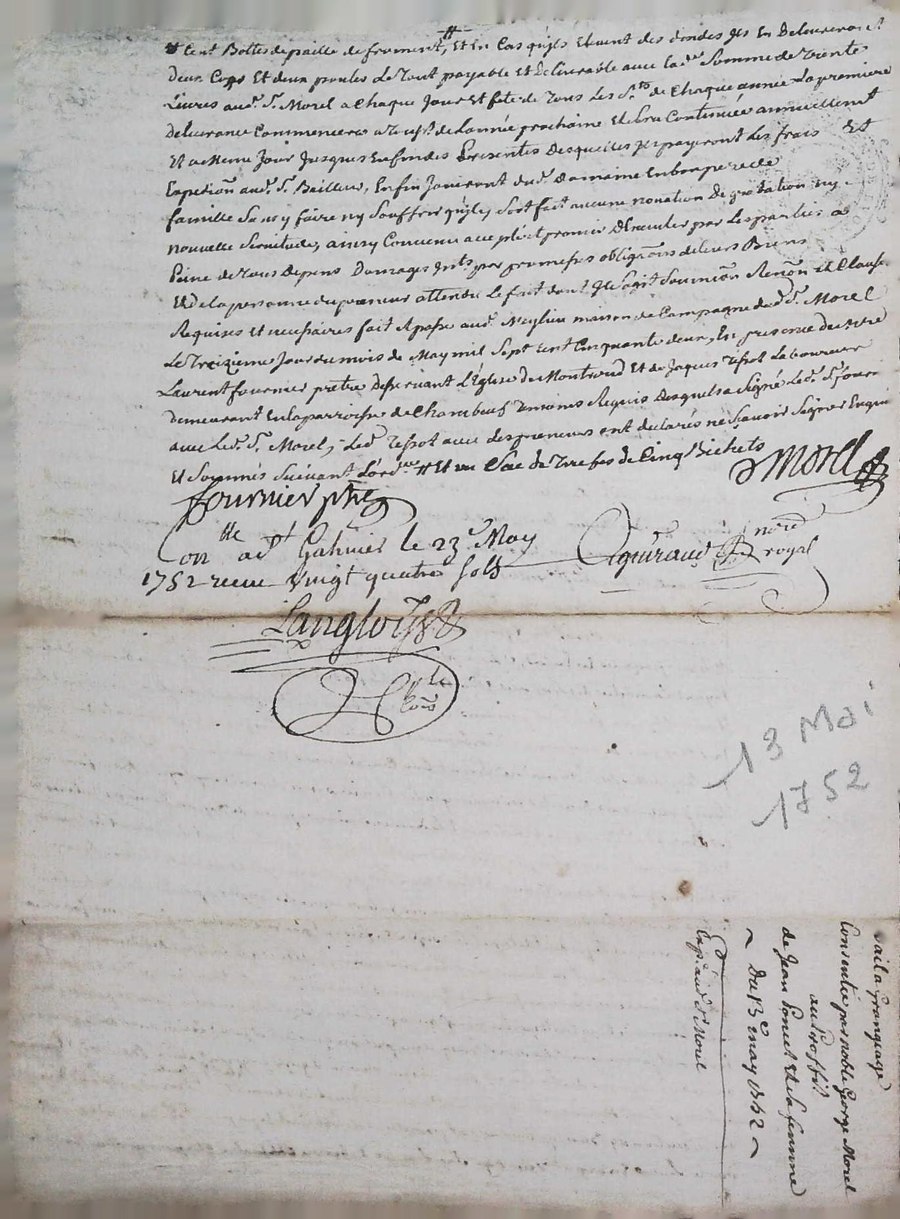 Cent Bottes de paille de froment, Et En Cas quils Elevent des dindes Ils En Delivreront
deux Cops Et deux poules Le Tout payable Et Delivrable avec lad.e Somme de Trente
Livres aud. S.r Morel a Chaque Jour Et fete de Tous Les S.ts de Chaque année La premiere
delivrance Commencera a Touss.t de Lannée prochaine Et Sera Continuée annuellement
Et a meme Jour Jusques En fin des Presentes Desquelles Ils payeront Les frais Et
Expedion aud. S.r Bailleur, Enfin Jouiront dud. Domaine En bon pere de
famille Sans y faire ny Souffrir quil y Soit fait aucune novation degradation ny
nouvelle Servitude, ainsy Convenu accepté et promis Executer par Les parties a
Peine de Tous Depens Domages Jnts par promesses obligons de leurs Biens
Et de la personne du preneur attendu Le fait dont Il Sagit Soumion Renon Et Clause
Requises et necessaires fait Et passé aud. Meylieu maison de Campagne dud. S.r Morel
Le Treizieme Jour du mois de May mil Sept Cent Cinquante deux, En presence de M.re
Laurent fournier pretre Desservant L'Eglise de Montrond Et de Jaques Tissot Laboureur
demeurant En la parroisse de Chambeuf Temoins Requis Desquels a Signé Led. S.r four
avec Led. S.r Morel, Led. Tissot avec Les preneurs ont declarés ne Scavoir Signer Enquis
Et Sommés Suivant L'ord.ce # Et un Sac de Trefles de Cinq Bichets
Morel
fournier ptre
Con.tlle a S.t Galmier le 23.e May
1752 receu vingt quatre sols
guiraud no.re royal
Langlois
13 Mai
1752
Bail a Grangeage
Consentie par noble George Morel
au Proffit
de Jean Poncet Et de sa femme
~ Du 13.e may 1752 ~
Exp.é aud. S.r Morel